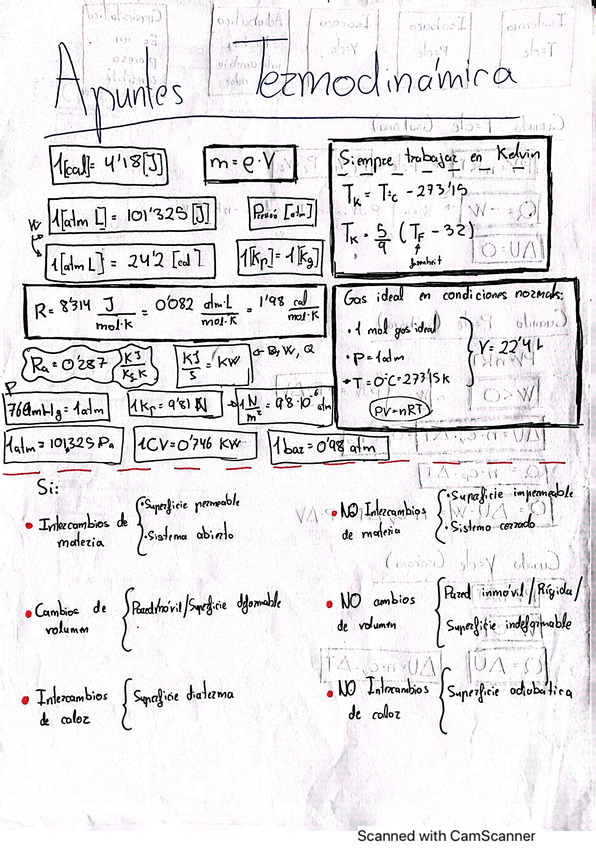 Apuntes Termodinámica
1[cal]= 4'18[J]
m = ρ·V
Siempre trabajar en Kelvin
T_K = T_ºC - 273'15
T_K = 5/9 (T_F - 32)
1[atm L] = 101'325 [J]
Presión [atm]
W
1[atm L] = 24'2 [cal]
1[Kp] = 1[Kg]
R = 8'314 J/mol·K = 0'082 atm·L/mol·K = 1'98 cal/mol·K
Gas ideal en condiciones normales:
· 1 mol gas ideal
· P = 1 atm
· T = 0ºC = 273'15 K
V = 22'4 L
PV=nRT
Ra = 0'287 KJ/Kg·K
KJ/S = KW
P
760mmHg = 1atm
1Kp = 9'81 N
1 N/m² = 9'8·10⁻⁶ atm
1atm = 101,325 Pa
1CV = 0'746 KW
1 bar = 0'98 atm
Si:
· Intercambios de materia
· Superficie permeable
· Sistema abierto
· NO Intercambios de materia
· Superficie impermeable
· Sistema cerrado
· Cambios de volumen
Pared móvil/Superficie deformable
· NO cambios de volumen
Pared inmóvil/Rígida/
Superficie indeformable
· Intercambios de calor
Superficie diaterma
· NO Intercambios de calor
Superficie adiabática
Scanned with CamScanner